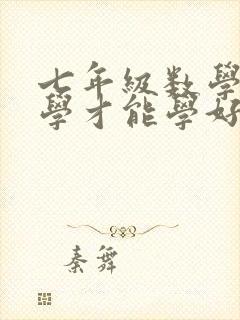 七年級数學
學才能學好
秦舞